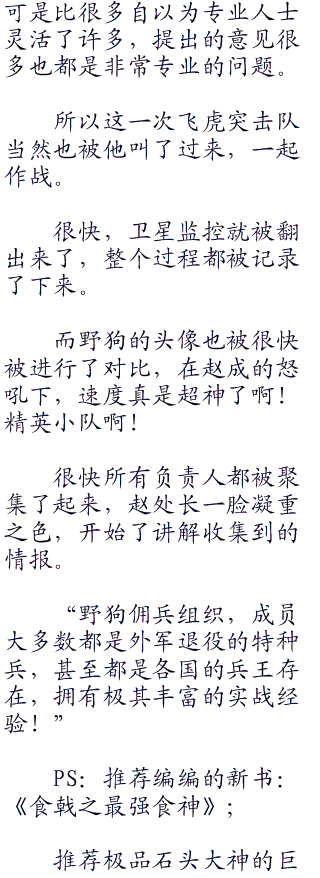 可是比很多自以为专业人士
灵活了许多，提出的意见很
多也都是非常专业的问题。
所以这一次飞虎突击队
当然也被他叫了过来，一起
作战。
很快，卫星监控就被翻
出来了，整个过程都被记录
了下来。
而野狗的头像也被很快
被进行了对比，在赵成的怒
吼下，速度真是超神了啊！
精英小队啊！
很快所有负责人都被聚
集了起来，赵处长一脸凝重
之色，开始了讲解收集到的
情报。
“野狗佣兵组织，成员
大多数都是外军退役的特种
兵，甚至都是各国的兵王存
在，拥有极其丰富的实战经
验！”
PS：推荐编编的新书：
《食戟之最强食神》；
推荐极品石头大神的巨